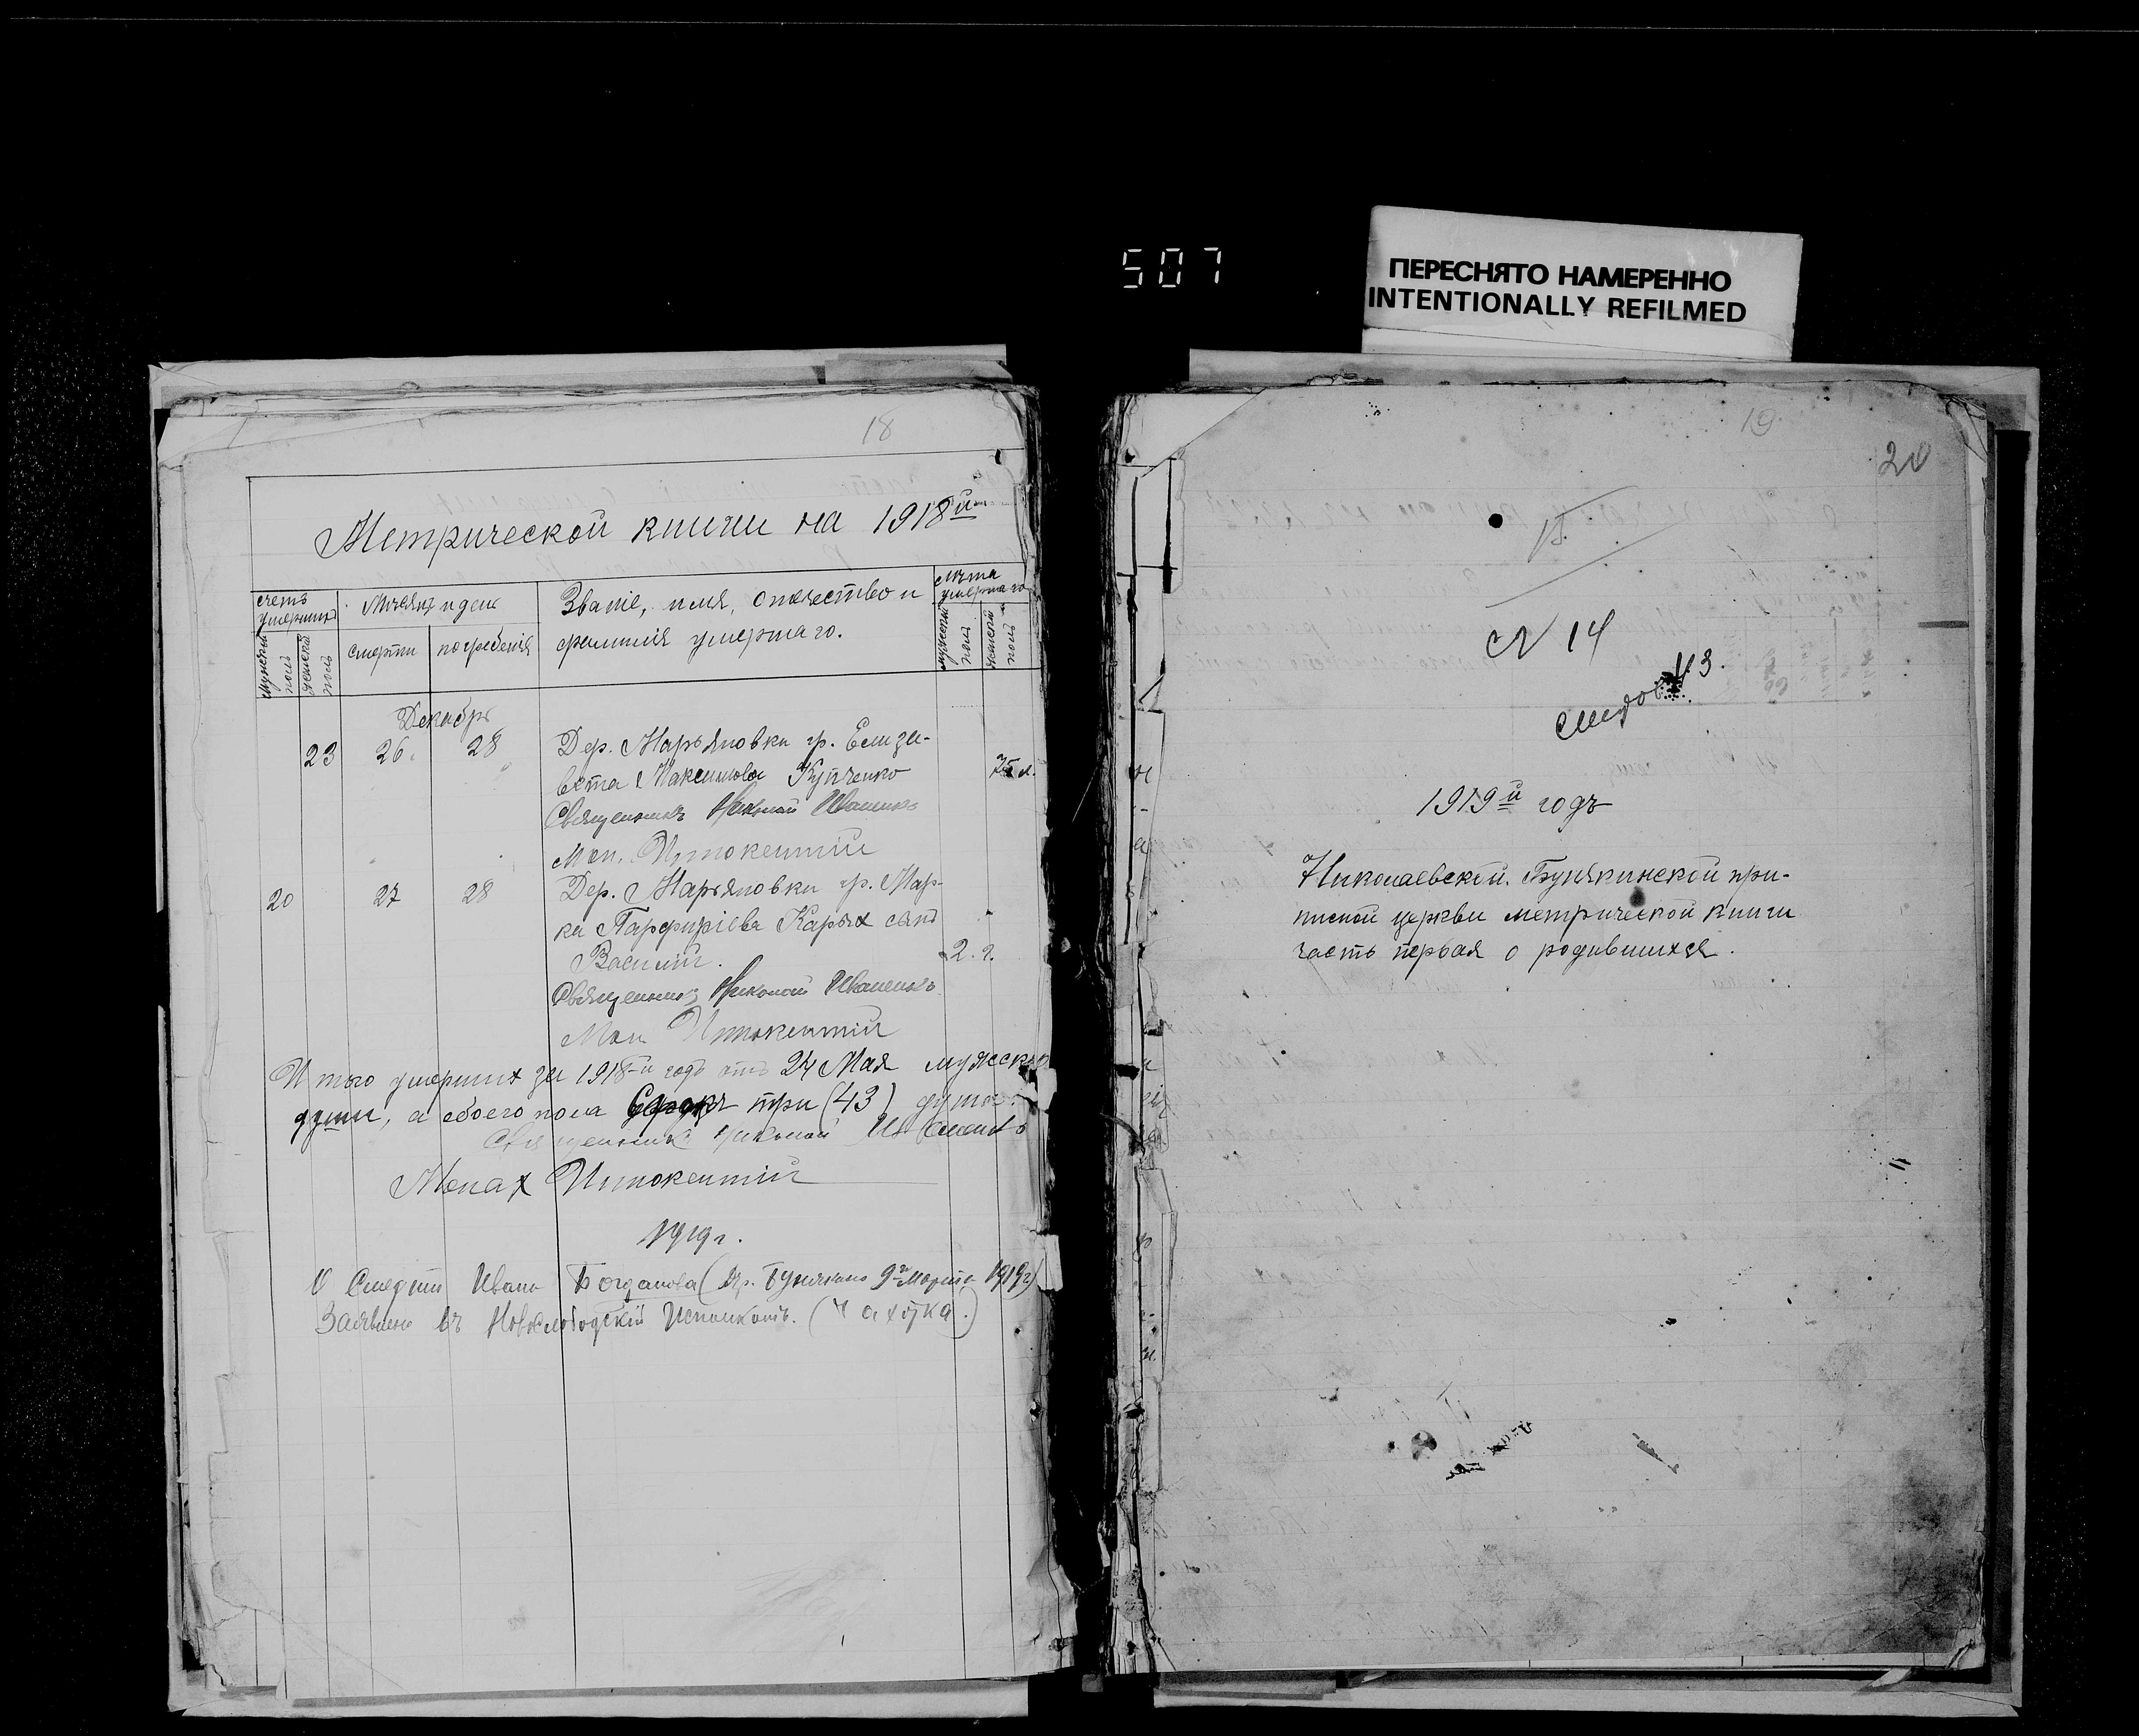 507
ПЕРЕСНЯТО НАМЕРЕННО
INTENTIONALLY REFILMED
18
Метрической книги на 1918й
счетъ умершихъ
Мѣсяц и день
Званіе, имя, отчество и фамилія умершаго.
лѣта умершаго
мужской полъ
женскій полъ
смерти
погребенія
мужской полъ
женскій полъ
Декабрь
23 26. 28 Дер. Марьяновки гр. Елиза-
вета Максимова Купченко
Священникъ Николай Иваненко
Мон. Иннокентий
20 27 28 Дер. Марьяновки гр. Мар-
ка Парфиріева Карых сынъ
Василій. 2. г.
Священникъ Николай Иваненко
Мон Иннокентий
Итого умерших за 1918-й годъ отъ 24 Мая мужско
души, а обоего пола три (43) душ
Священник Николай
Монах Иннокентій
1919 г.
О Смерти Ивана Богданова (др. Бунякино 9го Марта 1919 г)
Заявлено въ Новослободскій Исполкомъ. (Чахотка.)
19
20
N 14
1919й годъ
Николаевской. Бунякинской при-
писной церкви метрической книги
часть первая о родившихся.